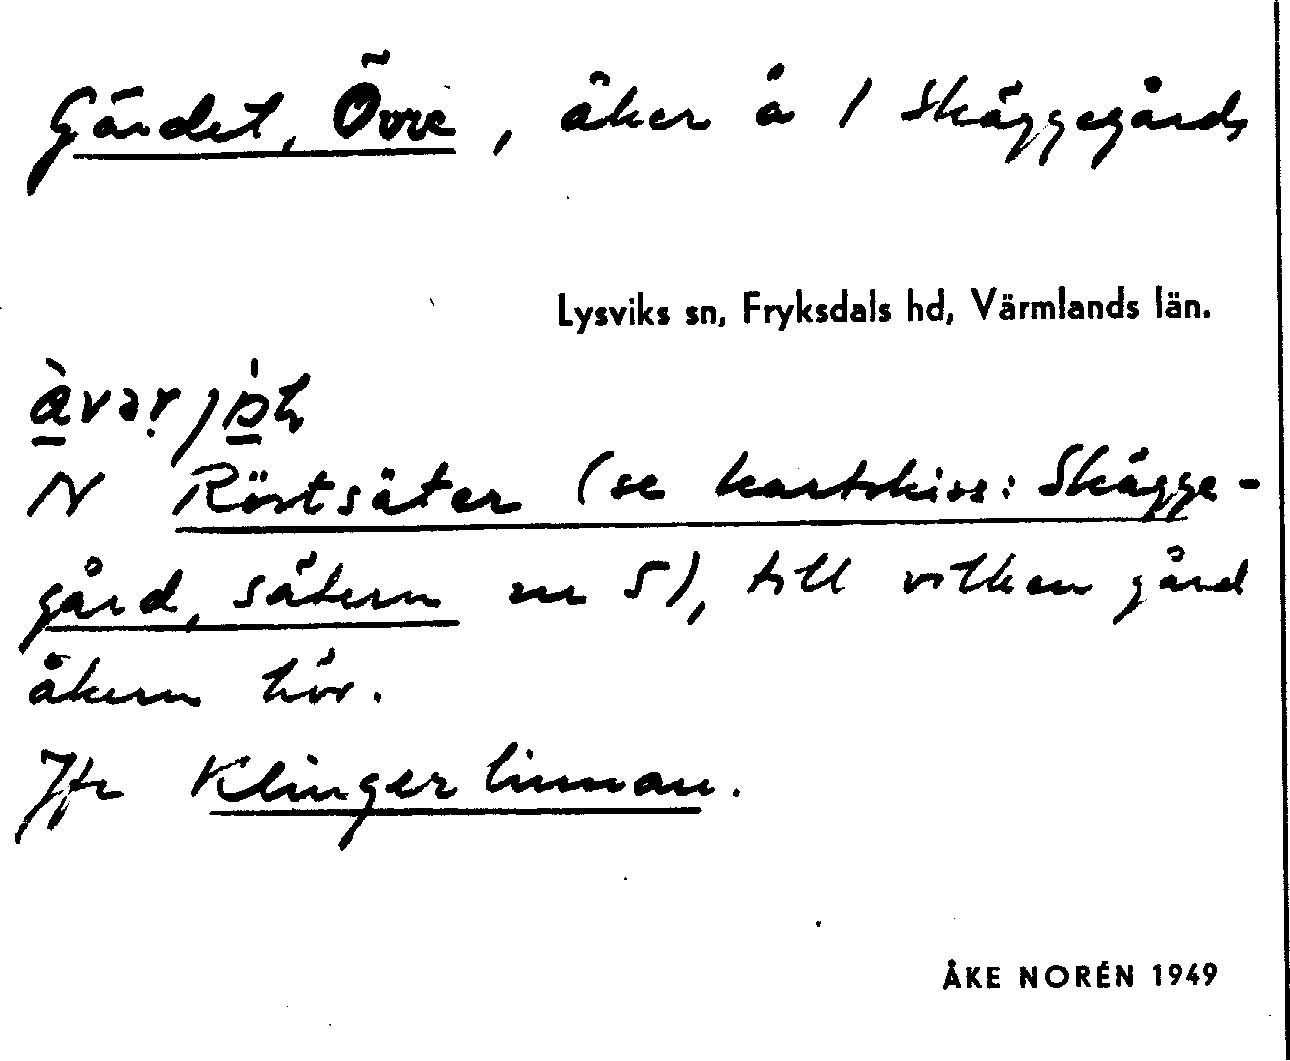 Gärdet, Övre, åker å 1 Skäggegård,
Lysviks sn, Fryksdals hd, Värmlands län.
N Röstsäter (se kartskiss: Skägge-
gård, sätern nr 5), till vilken gård
åkern hör.
Jfr Klingerlinnan.
ÅKE NORÉN 1949